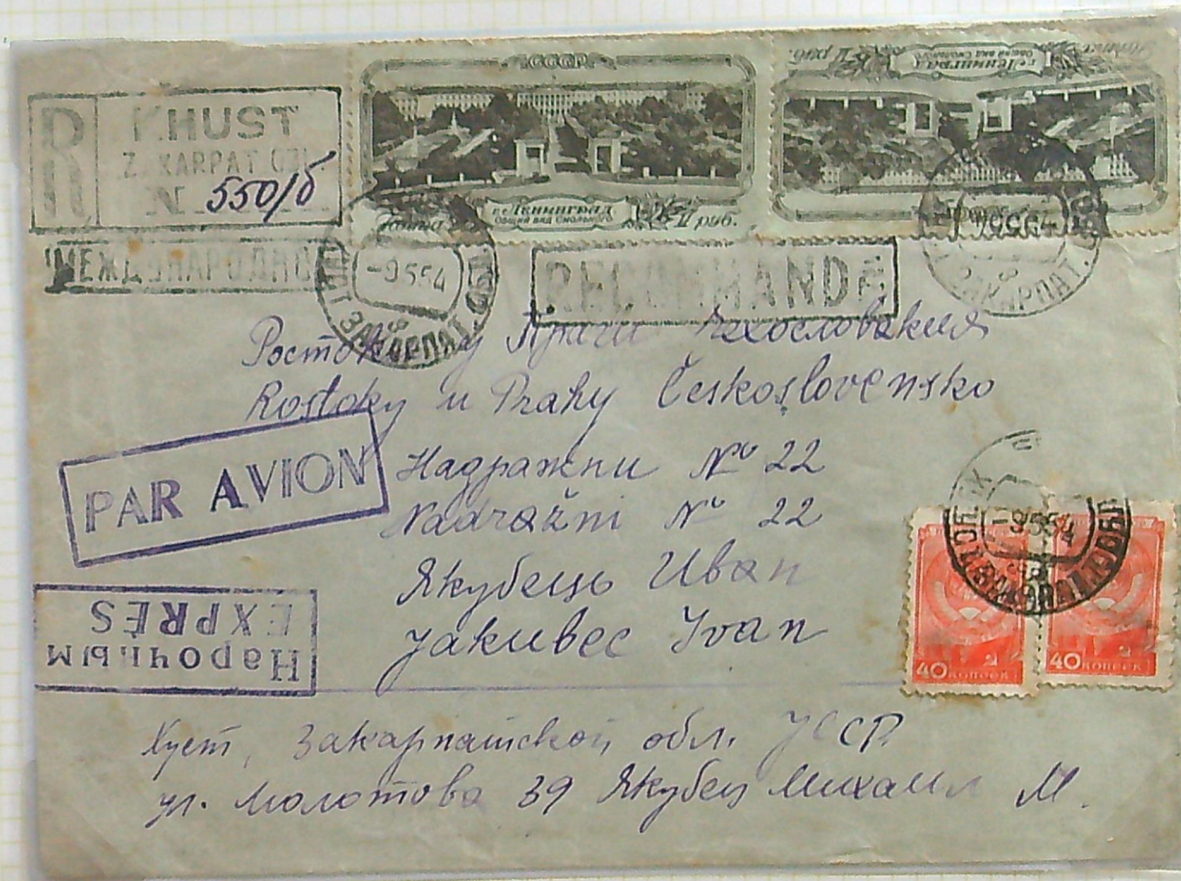 R KHUST
ZAKARPAT. OBL.
N 550/б
МЕЖДУНАРОДНОЕ
СССР
г. Ленинград
Общий вид Смольного
Почта II руб.
г. Ленинград
Общий вид Смольного
II руб.
RECOMMANDÉ
-9554
ЗАКАРПАТ. ОБЛ.
-9554
ЗАКАРПАТ.
Росток у Праги Чехословакия
Rostoky u Prahy Československo
PAR AVION
Надражни № 22
Nadražni № 22
Якубець Иван
Jakubec Ivan
Нарочным
EXPRÈS
-9554
40 КОПЕЕК
40 КОПЕЕК
Хуст, Закарпатской обл. УССР.
ул. Молотова 39 Якубец Михаил М.